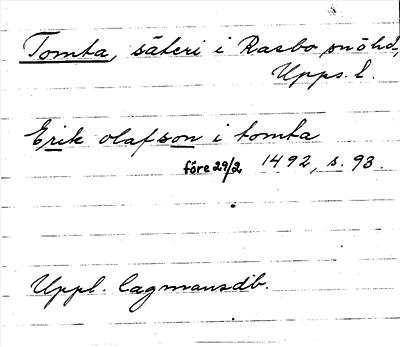 Tomta, säteri i Rasbo snöhd,
Upps. l.
Erik olafson i tomta
före 29/2 1492, s. 93.
Uppl. lagmansdb.